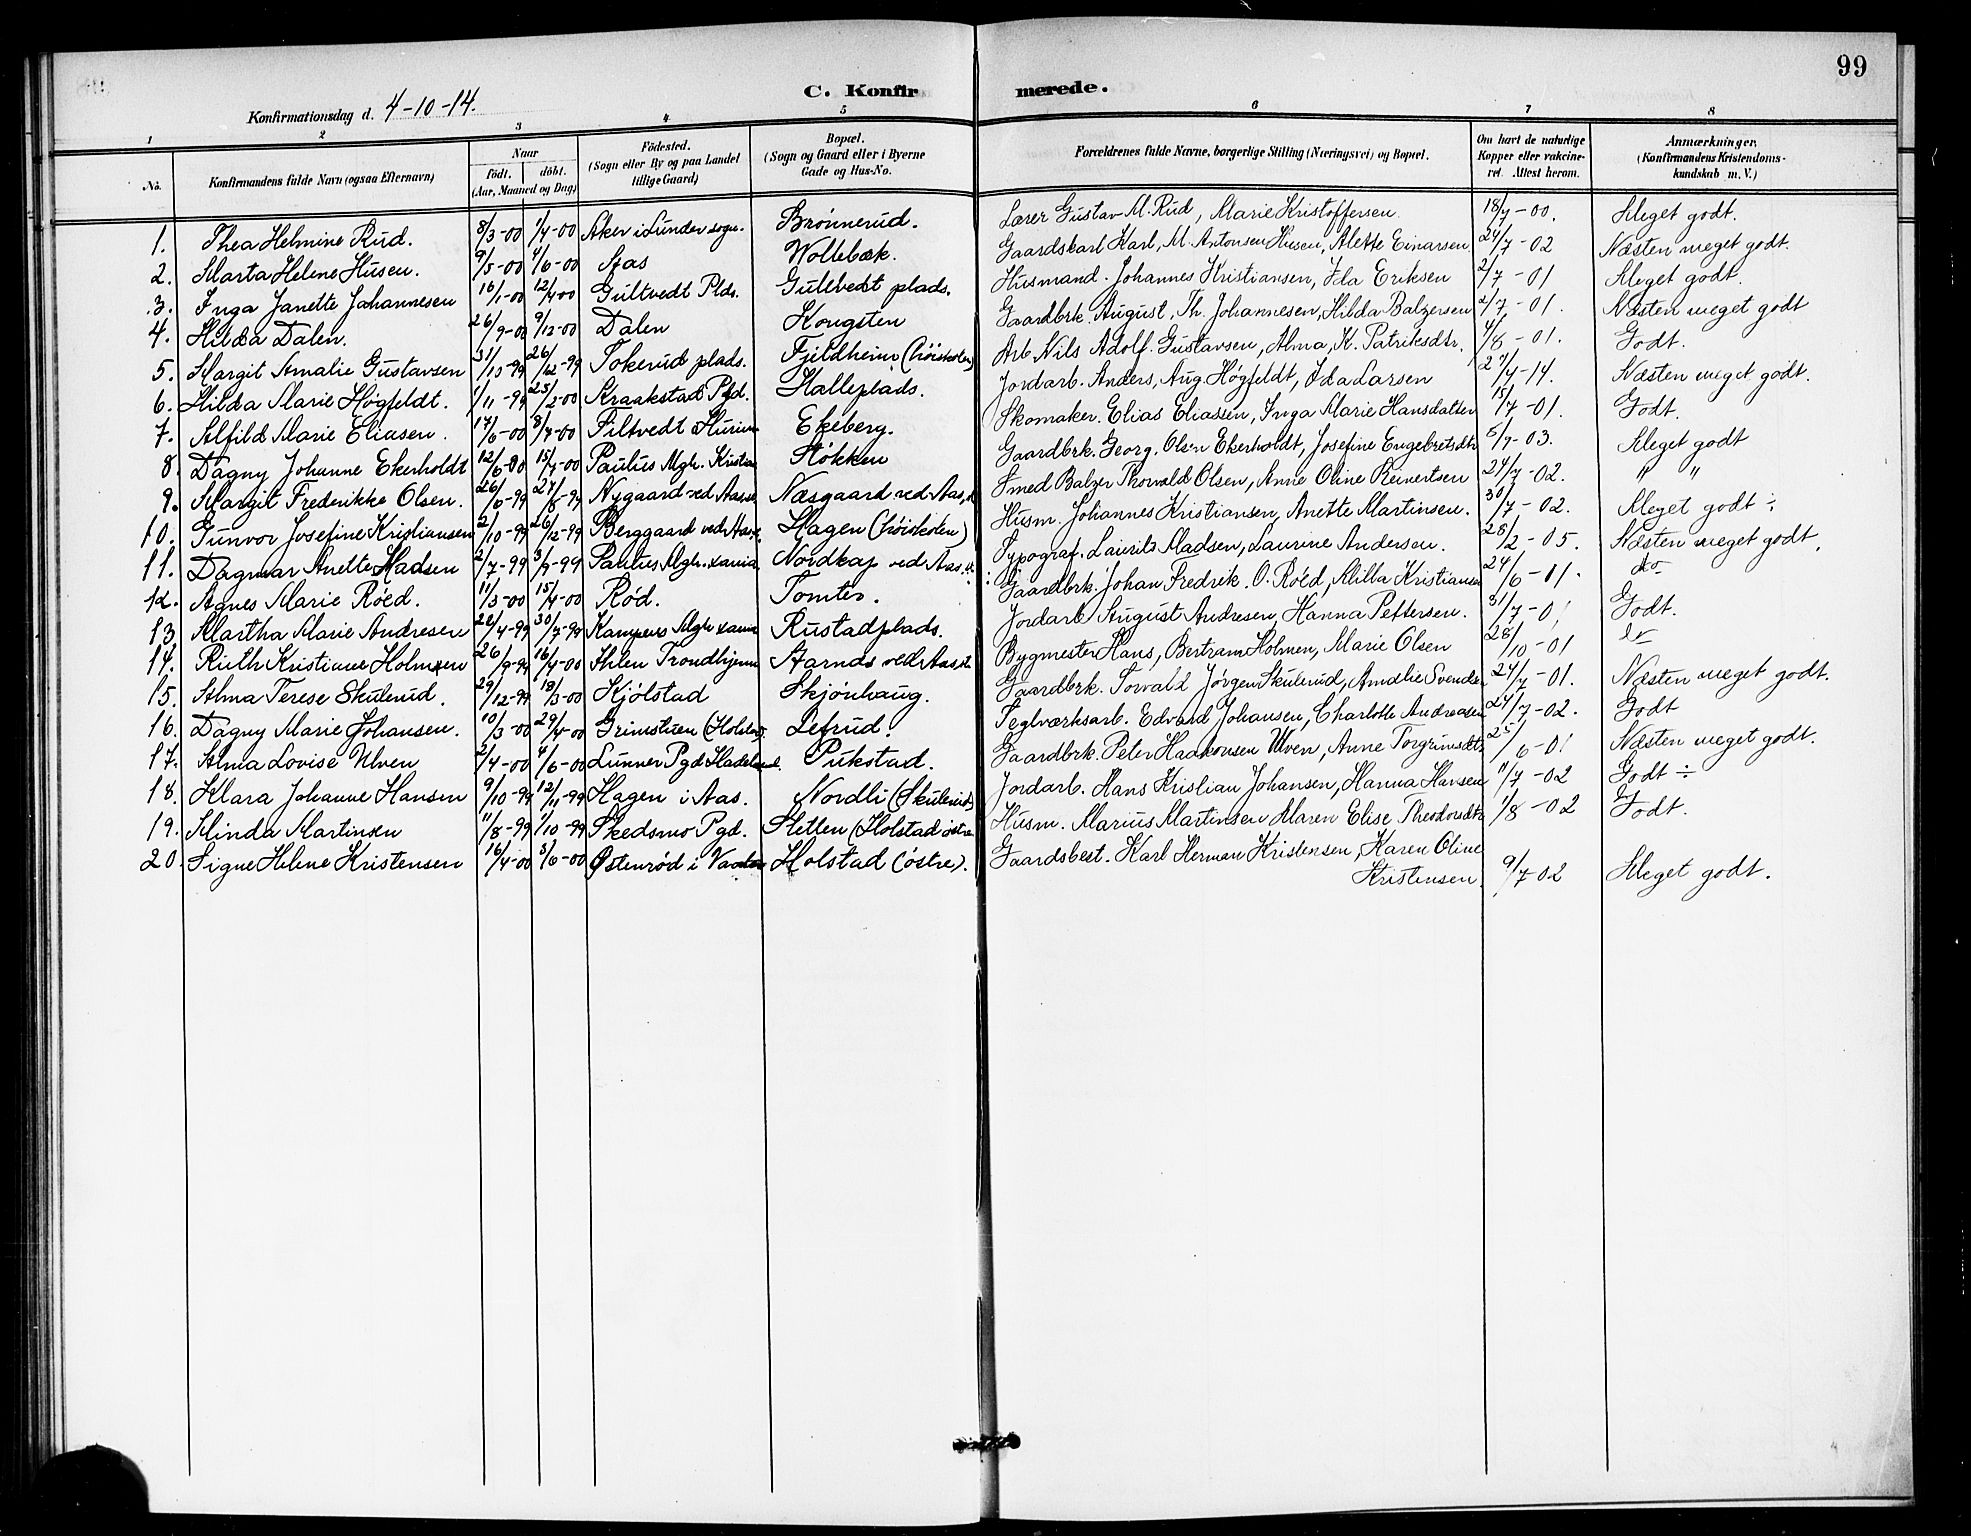 99
C. Konfirmerede.
Konfirmationsdag d. 4-10-14.
1 2 3 4 5 6 7 8
No. Konfirmandens fulde Navn (ogsaa Efternavn) Naar födt. döbt. (Aar, Maaned og Dag) Födested. (Sogn eller By og paa Landet tillige Gaard) Bopæl. (Sogn og Gaard eller i Byerne Gade og Hus-No. Forældrenes fulde Navne, borgerlige Stilling (Næringsvei) og Bopæl. Om havt de naturlige Kopper eller vakcineret. Attest herom. Anmærkninger. (Konfirmandens Kristendomskundskab m. V.)
1. Thea Helmine Rud. 8/3-00 1/4-00 Aker i Sunder sogn. Brønnerud. Lærer Gustav M. Rud, Marie Kristoffersen 18/7-00. Meget godt.
2. Marta Helene Husen. 9/5-00 4/6-00 Aas Vollebæk. Gaardskarl Karl, M. Antonsen Husen, Alette Einarsen 24/7-02 Næsten meget godt.
3. Inga Janette Johannesen 16/1-00 12/4-00 Gultvedt Plds. Gultvedt plads. Husmand. Johannes Kristiansen, Ida Eriksen 2/7-01 Meget godt.
4. Hilda Dalen. 26/9-00 9/12-00 Dalen Kongsten Gaardbrk. August, Th. Johannesen, Hilda Balzersen 2/7-01. Næsten meget godt
5. Margit Amalie Gustavsen 31/10-99 26/12-99 Tokerud plads. Fjeldheim (høiskolen) Arb Nils Adolf. Gustavsen, Alma, K. Patriksdtr. 4/8-01. Godt.
6. Hilda Marie Høgfeldt. 1/11-99 25/2-00 Kraakstad Pgd. Halleplads. Jordarb. Anders, Aug. Høgfeldt, Ida Larsen 27/4-14. Næsten meget godt.
7. Alfild Marie Eliasen. 17/6-00 8/7-00 Filtvedt i Hurum Ekeberg. Skomaker. Elias Eliassen, Inga Marie Hansdatter 15/7-01. Godt.
8. Dagny Johanne Ekerholdt 12/6-00 15/7-00 Paulus Mgh. Kristia Støkken Gaardbrk. Georg. Olsen Ekerholdt, Josefine Engebretsdtr 5/9-03. Meget godt
9. Margit Frederikke Olsen. 26/6-99 27/8-99 Nygaard ved Aas st Næsgaard ved Aas, st Smed Balzer Thorvald Olsen, Anne Oline Reinertsen 24/7-02. " "
10. Gunvor Josefine Kristiansen 2/10-99 26/12-99 Berggaard ved Aas Hagen (høiskolen) Husm. Johannes Kristiansen, Anette Martinsen. 30/7-02. Meget godt ÷
11. Dagmar Anette Madsen 2/7-99 3/9-99 Paulus Mgh. xania Nordkap ved Aas. st. Typograf. Laurits Madsen, Laurine Andersen. 28/2-05. Næsten meget godt.
12. Agnes Marie Röed. 11/3-00 15/4-00 Röd. Tomter. Gaardbrk. Johan Fredrik. O. Röed, Milla Kristiansen 24/6-01. do
13 Martha Marie Andresen 22/4-99 30/7-99 Kampens Mgh xania Rustadplads. Jordarb August Andresen, Hanna Pettersen. 31/7-01 Godt.
14. Ruth Kristiane Holmsen 26/9-99 16/4-00 Ihlen Trondhjem Aarnds ved Aas, st. Bygmester Hans, Bertram Holmen, Marie Olsen 28/10-01
15. Alma Terese Skulerud. 29/12-99 18/3-00 Kjølstad Skjønhaug. Gaardbrk. Torvald Jørgen Skulerud, Amelie Svends 24/7-01. Næsten meget godt.
16. Dagny Marie Johansen. 10/3-00 29/4-00 Grimstuen (Holstad). Lefrud. Teglværksarb. Edvard Johansen, Charlotte Andreasen 24/7-02. Godt
17. Alma Lovise Ulven 2/4-00 4/6-00 Lunner Pgd. Hadeland. Pukstad. Gaardbrk. Peter Haakonsen Ulven, Anne Torgrimsdtr 25/6-01 Næsten meget godt.
18. Klara Johanne Hansen 9/10-99 12/11-99 Hagen i Aas. Nordli (Skulerud) Jordarb. Hans Kristian Johansen, Hanna Hansen 11/7-02 Godt ÷
19. Minda Martinsen 11/8-99 1/10-99 Skedsmo Pgd. Sletten (Holstad østre Husm. Marius Martinsen Maren Elise Theodorsdtr 1/8-02 Godt.
20. Signe Helene Kristensen 16/4-00 5/6-00 Østenrød i Holstad (østre). Gaardsbest. Karl Herman Kristensen, Karen Oline
Kristensen. 9/7-02 Meget godt.